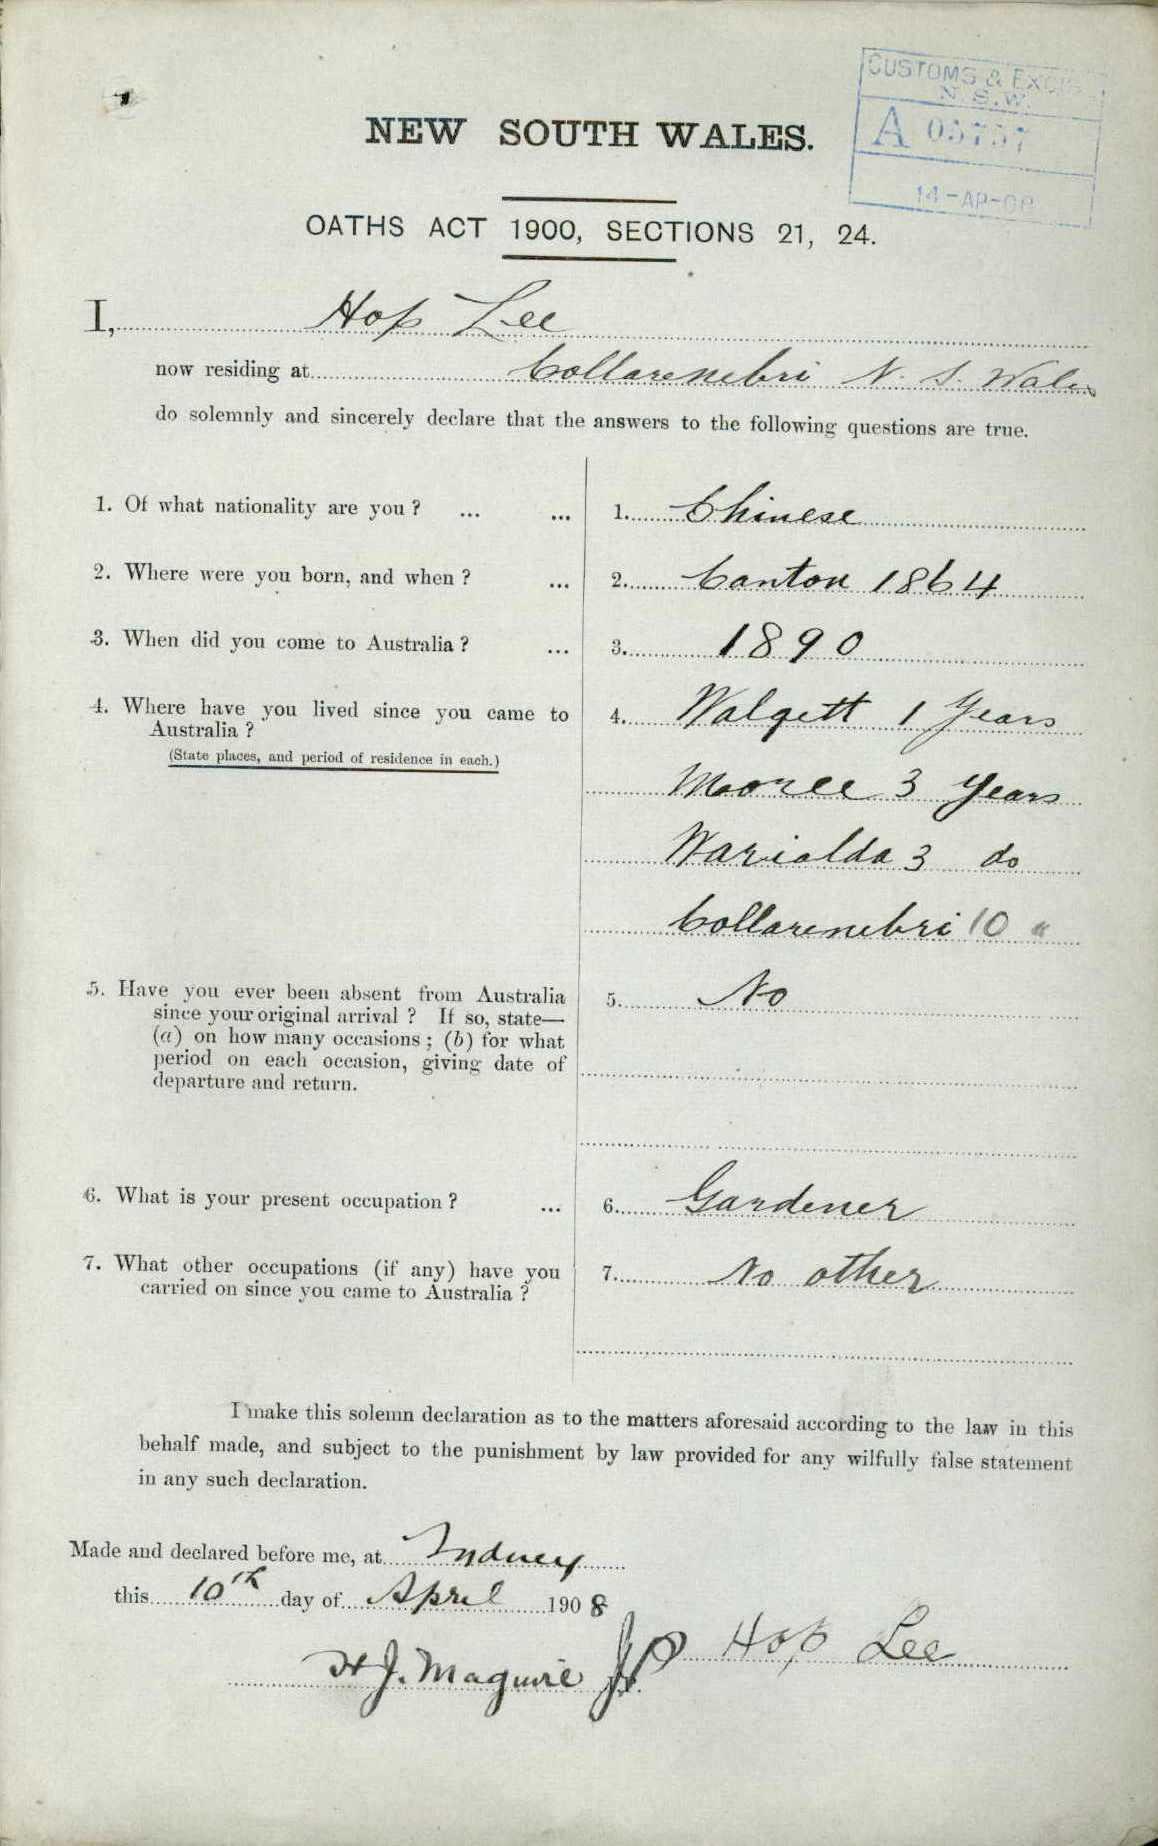 CUSTOMS & EXCISE
N.S.W.
A 05757
14-AP-08
NEW SOUTH WALES.
OATHS ACT 1900, SECTIONS 21, 24.
I, Hop Lee
now residing at Collarenebri N. S. Wales
do solemnly and sincerely declare that the answers to the following questions are true.
1. Of what nationality are you ? ... ... 1. Chinese
2. Where were you born, and when ? ... 2. Canton 1864
3. When did you come to Australia ? ... 3. 1890
4. Where have you lived since you came to 4. Walgett 1 Years
Australia ?
(State places, and period of residence in each.)
Moree 3 Years
Warialda 3 do
Collarenebri 10 "
5. Have you ever been absent from Australia 5. No
since your original arrival ? If so, state—
(a) on how many occasions ; (b) for what
period on each occasion, giving date of
departure and return.
6. What is your present occupation ? ... 6. Gardener
7. What other occupations (if any) have you 7. No other
carried on since you came to Australia ?
I make this solemn declaration as to the matters aforesaid according to the law in this
behalf made, and subject to the punishment by law provided for any wilfully false statement
in any such declaration.
Made and declared before me, at Sydney
this 10th day of April 1908
H J. Maguire JP Hop Lee